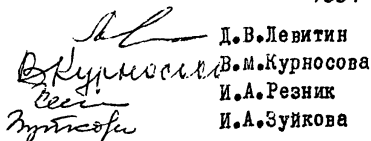 Д.В.Левитин
В.Курносова В.М.Курносова
И.А.Резник
И.А.Зуйкова